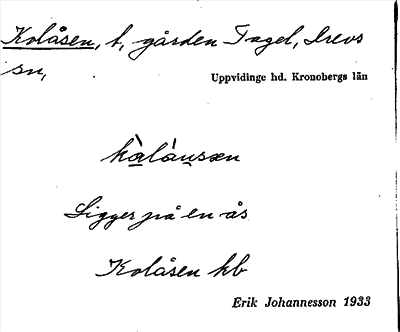 Kolåsen, t, gården Tagel, Drevs
sn,
Uppvidinge hd. Kronobergs län
Ligger på en ås
Kolåsen kb
Erik Johannesson 1933